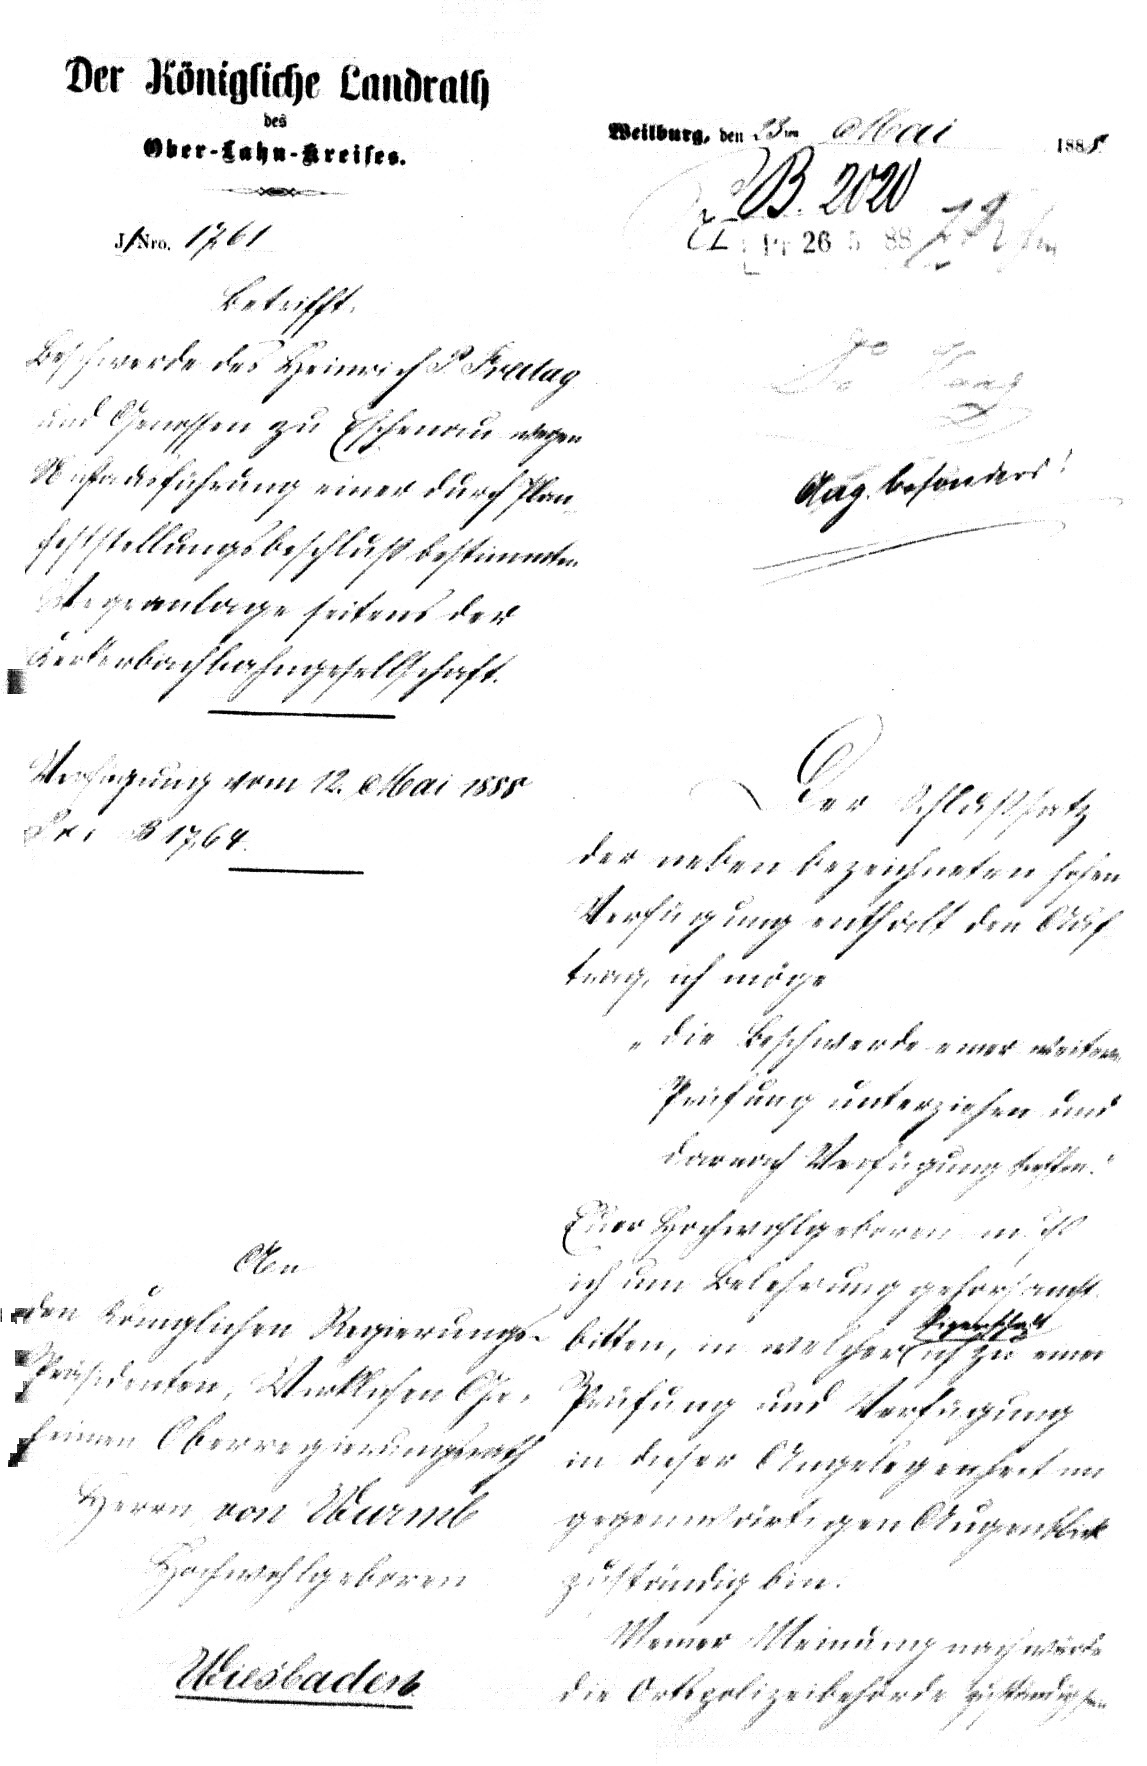 Der Königliche Landrath
des
Ober-Lahn-Kreises.
J. Nro. 1761
Weilburg, den 23ten Mai 1888
B. 2020
Pr 26 5 88
Betrifft.
Beschwerde des Heinrich P. Freitag
und Genossen zu Eschenau wegen
Nichtausführung einer durch Plan
feststellungsbeschluß bestimmten
Wegeanlage seitens der
Kerkerbachbahngesellschaft.
Verfügung vom 12. Mai 1888
Pr. I B 1764.
An
den Königlichen Regierungs-
Präsidenten, Wirklichen Ge-
heimen Oberregierungsrath
Herrn von Wurmb
Hochwohlgeboren
Wiesbaden.
Ang. besonders!
Der Schlußsatz
der neben bezeichneten hohen
Verfügung enthält den Auf
trag, ich möge
"die Beschwerde einer weitern
Prüfung unterziehen und
darnach Verfügung treffen."
Euer Hochwohlgeboren muß
ich um Belehrung gehorsamst
bitten, in welcher Eigenschaft ich zu einer
Prüfung und Verfügung
in dieser Angelegenheit im
gegenwärtigen Augenblick
zuständig bin.
Meiner Meinung nach würde
die Ortspolizeibehörde zuständig sein